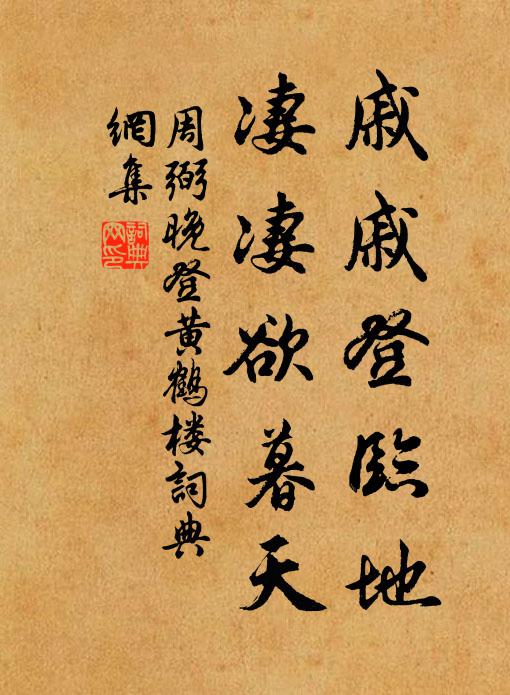 戚戚登臨地
凄凄欲暮天
周弼晚登黄鶴楼詞典
網集
詞典
网印